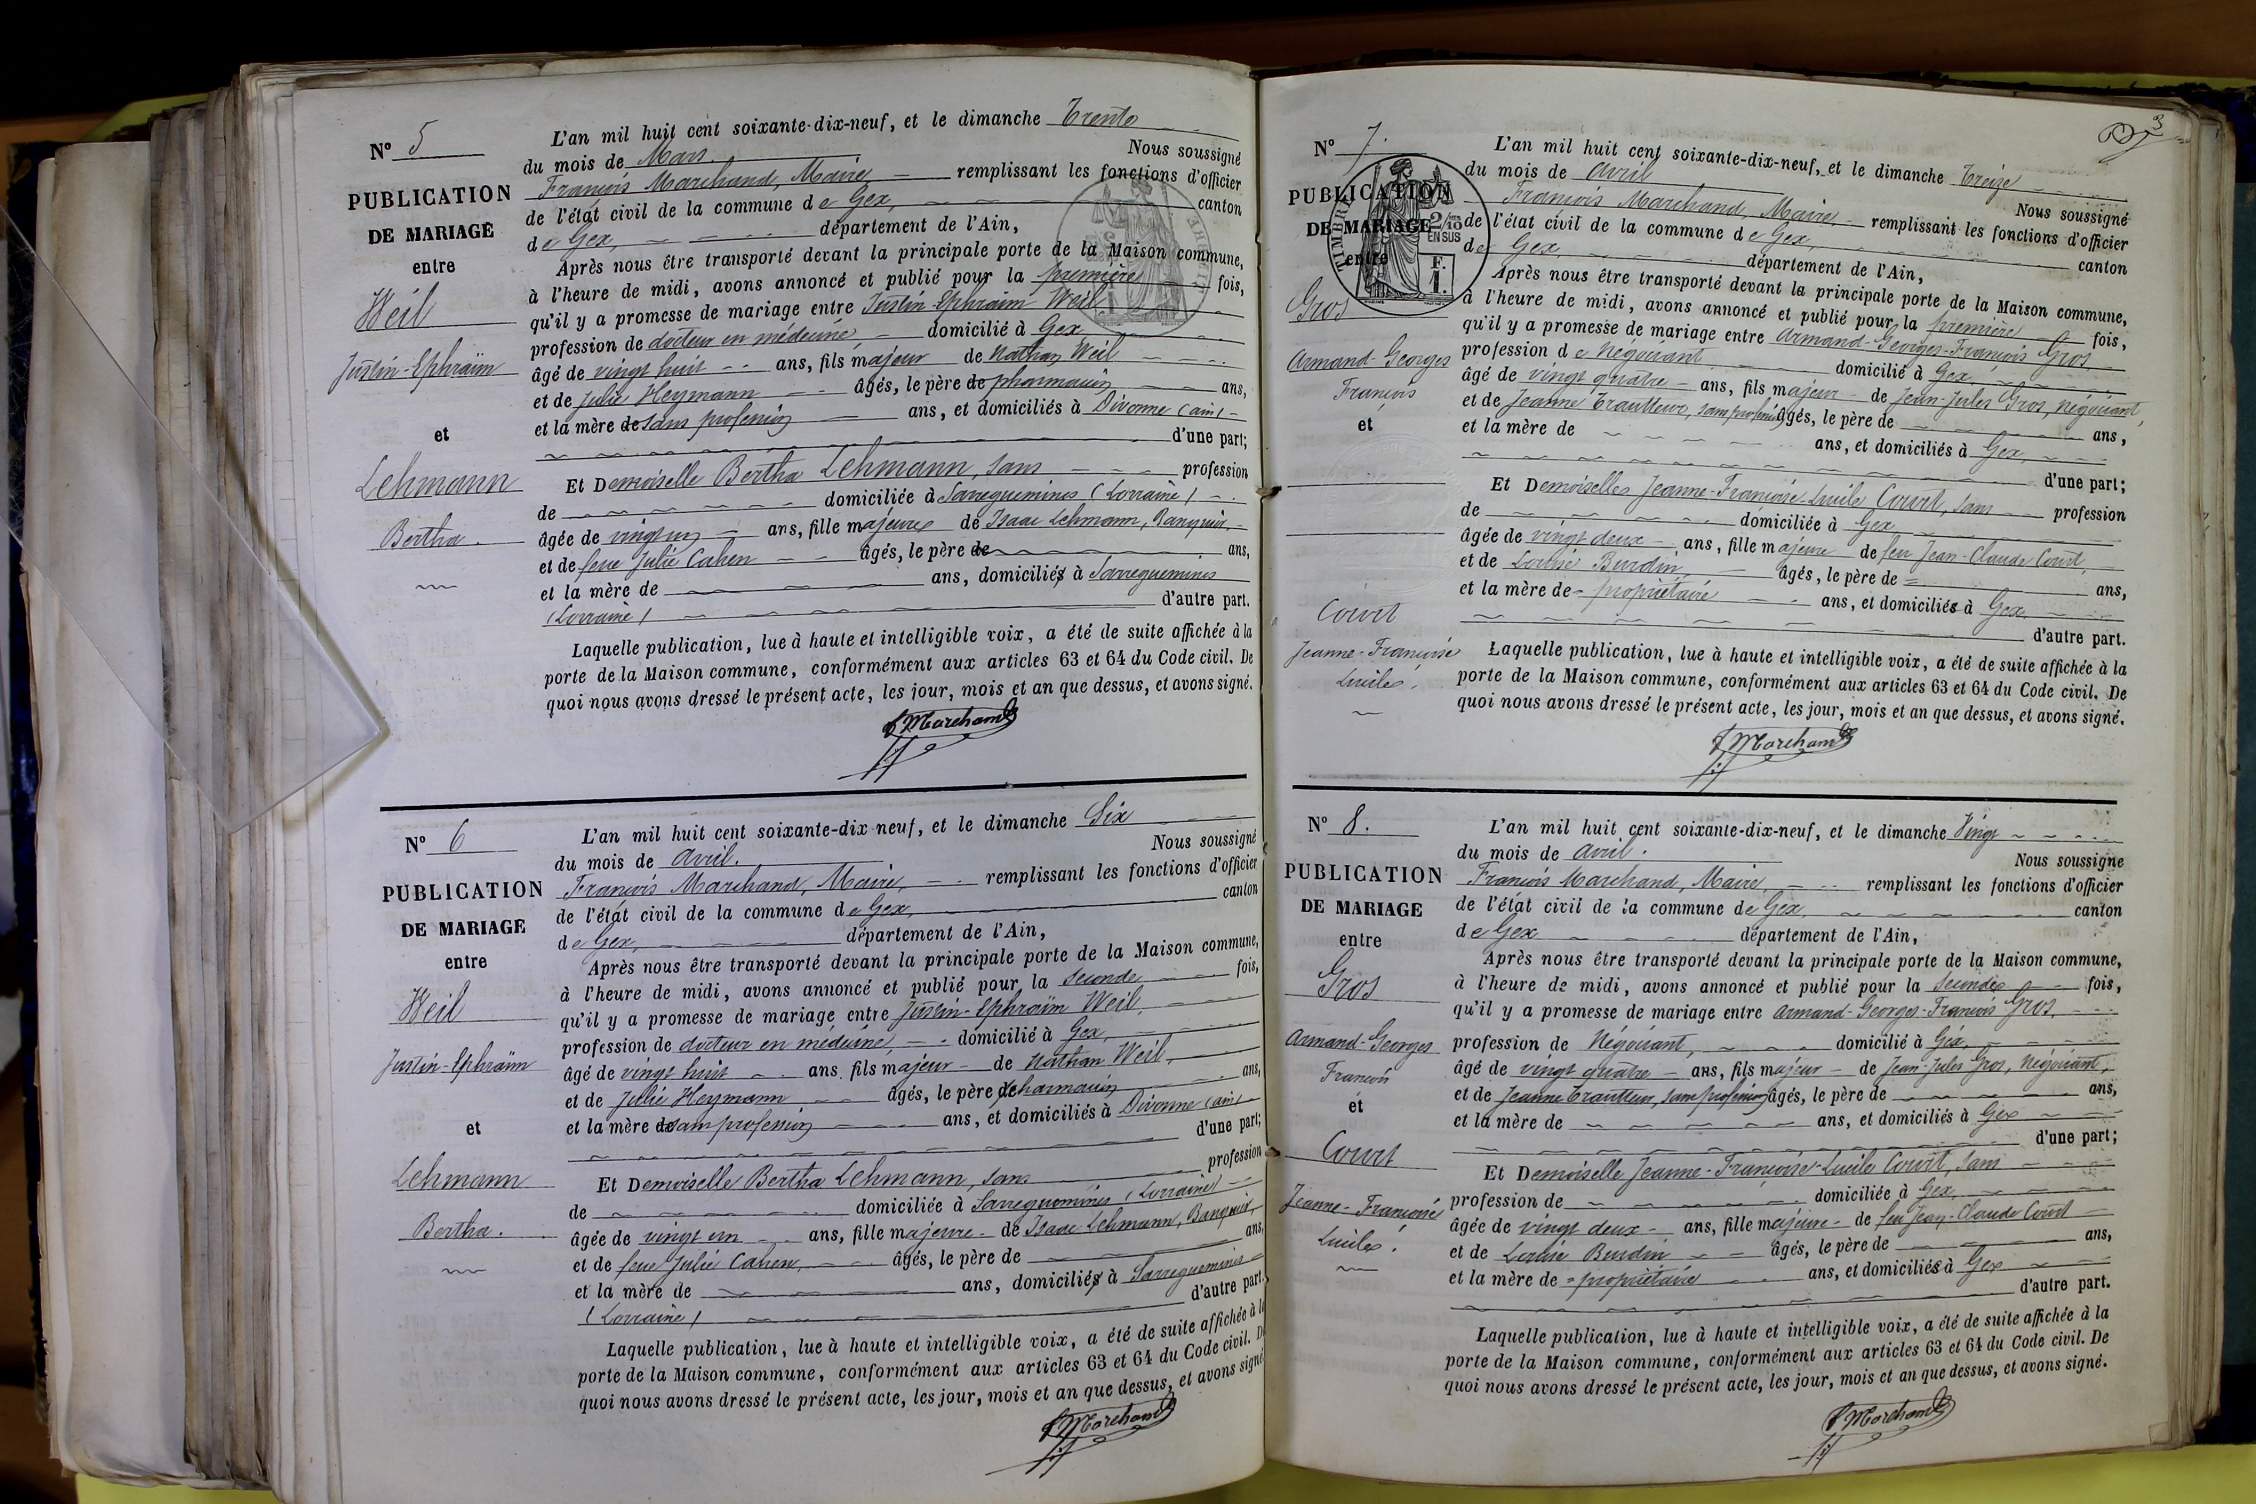 N° 5
PUBLICATION
DE MARIAGE
entre
Weil
Justin-Ephraïm
et
Lehmann
Bertha.
L'an mil huit cent soixante-dix-neuf, et le dimanche Trente
du mois de Mars. Nous soussigné
François Marchand, Maire remplissant les fonctions d'officier
de l'état civil de la commune de Gex, canton
de Gex, département de l'Ain,
Après nous être transporté devant la principale porte de la Maison commune,
à l'heure de midi, avons annoncé et publié pour la première fois,
qu'il y a promesse de mariage entre Justin-Ephraïm Weil
profession de docteur en médecine domicilié à Gex
âgé de vingt huit ans, fils majeur de Nathan Weil
et de Julie Heymann âgés, le père de pharmacien ans,
et la mère de sans profession ans, et domiciliés à Divonne (ain)
d'une part;
Et Demoiselle Bertha Lehmann, sans profession
de domiciliée à Sarreguemines (Lorraine)
âgée de vingt un ans, fille majeure de Isaac Lehmann, Banquier,
et de feue Julie Cahen âgés, le père de ans,
et la mère de ans, domiciliés à Sarreguemines
(Lorraine) d'autre part.
Laquelle publication, lue à haute et intelligible voix, a été de suite affichée à la
porte de la Maison commune, conformément aux articles 63 et 64 du Code civil. De
quoi nous avons dressé le présent acte, les jour, mois et an que dessus, et avons signé.
f Marchand
N° 6
PUBLICATION
DE MARIAGE
entre
Weil
Justin-Ephraïm
et
Lehmann
Bertha.
L'an mil huit cent soixante-dix neuf, et le dimanche Six
du mois de avril. Nous soussigné
François Marchand, Maire, remplissant les fonctions d'officier
de l'état civil de la commune de Gex, canton
de Gex, département de l'Ain,
Après nous être transporté devant la principale porte de la Maison commune,
à l'heure de midi, avons annoncé et publié pour la seconde fois,
qu'il y a promesse de mariage entre Justin-Ephraïm Weil,
profession de docteur en médecine, domicilié à Gex,
âgé de vingt huit ans fils majeur de Nathan Weil,
et de Julie Heymann âgés, le père de pharmacien ans,
et la mère de sans profession ans, et domiciliés à Divonne (ain)
d'une part;
Et Demoiselle Bertha Lehmann, sans profession
de domiciliée à Sarreguemines (Lorraine)
âgée de vingt un ans, fille majeure de Isaac Lehmann, Banquier,
et de feue Julie Cahen, âgés, le père de ans,
et la mère de ans, domiciliés à Sarreguemines
(Lorraine) d'autre part.
Laquelle publication, lue à haute et intelligible voix, a été de suite affichée à la
porte de la Maison commune, conformément aux articles 63 et 64 du Code civil. De
quoi nous avons dressé le présent acte, les jour, mois et an que dessus, et avons signé
f Marchand
3
N° 7.
PUBLICATION
DE MARIAGE
entre
TIMBRE
2/10
EN SUS
F.
1.
Gros
Armand-Georges
François
et
Court
Jeanne-Françoise
Lucile.
L'an mil huit cent soixante-dix-neuf, et le dimanche Treize
du mois de avril Nous soussigné
François Marchand, Maire remplissant les fonctions d'officier
de l'état civil de la commune de Gex, canton
de Gex, département de l'Ain,
Après nous être transporté devant la principale porte de la Maison commune,
à l'heure de midi, avons annoncé et publié pour la première fois,
qu'il y a promesse de mariage entre Armand-Georges-François Gros
profession de Négociant domicilié à Gex,
âgé de vingt quatre ans, fils majeur de Jean-Jules Gros, négociant,
et de Jeanne Trautteur, sans profession âgés, le père de ans,
et la mère de ans, et domiciliés à Gex,
d'une part;
Et Demoiselle Jeanne-Françoise Lucile Court, sans profession
de domiciliée à Gex
âgée de vingt deux ans, fille majeure de feu Jean-Claude Court,
et de Louise Burdin âgés, le père de ans,
et la mère de propriétaire ans, et domiciliés à Gex,
d'autre part.
Laquelle publication, lue à haute et intelligible voix, a été de suite affichée à la
porte de la Maison commune, conformément aux articles 63 et 64 du Code civil. De
quoi nous avons dressé le présent acte, les jour, mois et an que dessus, et avons signé.
f Marchand
N° 8.
PUBLICATION
DE MARIAGE
entre
Gros
Armand-Georges
François
et
Court
Jeanne-Françoise
Lucile.
L'an mil huit cent soixante-dix-neuf, et le dimanche Vingt
du mois de avril. Nous soussigné
François Marchand, Maire, remplissant les fonctions d'officier
de l'état civil de la commune de Gex, canton
de Gex département de l'Ain,
Après nous être transporté devant la principale porte de la Maison commune,
à l'heure de midi, avons annoncé et publié pour la seconde fois,
qu'il y a promesse de mariage entre Armand-Georges-François Gros,
profession de Négociant, domicilié à Gex,
âgé de vingt quatre ans, fils majeur de Jean-Jules Gros, Négociant,
et de Jeanne Trautteur, sans profession âgés, le père de ans,
et la mère de ans, et domiciliés à Gex
d'une part;
Et Demoiselle Jeanne-Françoise-Lucile Court, sans
profession de domiciliée à Gex,
âgée de vingt deux ans, fille majeure de feu Jean-Claude Court
et de Louise Burdin âgés, le père de ans,
et la mère de propriétaire ans, et domiciliés à Gex
d'autre part.
Laquelle publication, lue à haute et intelligible voix, a été de suite affichée à la
porte de la Maison commune, conformément aux articles 63 et 64 du Code civil. De
quoi nous avons dressé le présent acte, les jour, mois et an que dessus, et avons signé.
f Marchand